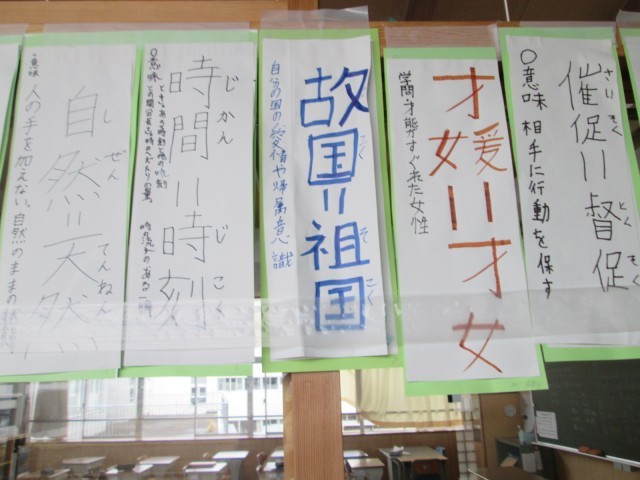 さいそく とくそく
催促=督促
〇意味 相手に行動を保す
才媛=才女
学問才能すぐれた女性
こく そこく
故国=祖国
自分の国の愛情や帰属意識
じかん じこく
時間=時刻
〇意味
しぜん てんねん
自然=天然
・意味 人の手を加えない、自然のままの